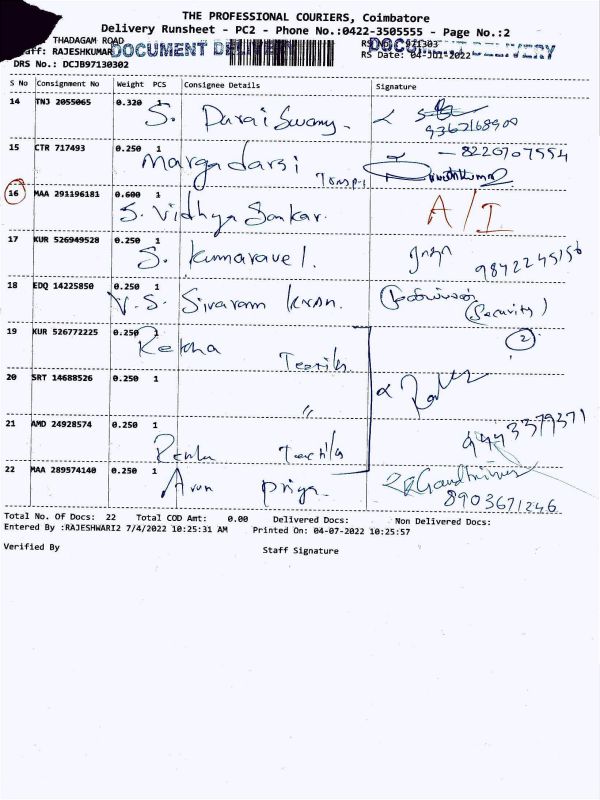 THE PROFESSIONAL COURIERS, Coimbatore
Delivery Runsheet - PC2 - Phone No.:0422-3505555 - Page No.:2
THADAGAM ROAD
RS No.: 971303
Staff: RAJESHKUMAR
DOCUMENT DELIVERY
DOCUMENT DELIVERY
RS Date: 04-Jul-2022
DRS No.: DCJB97130302
S No Consignment No Weight PCS Consignee Details Signature
14 TNJ 2055065 0.320 1
S. Durai Swamy.
9362168900
15 CTR 717493 0.250 1
Margadarsi
8220707554
16 MAA 291196181 0.600 1
S. Vidhya Sankar.
A/I
17 KUR 526949528 0.250 1
S. Kumaravel.
9842245156
18 EDQ 14225850 0.250 1
V. S. Sivaram
(Security)
19 KUR 526772225 0.250 1
Rekha
2
20 SRT 14688526 0.250 1
"
21 AMD 24928574 0.250 1
9443379371
22 MAA 289574140 0.250 1
Arun Priya.
8903671246
Total No. Of Docs: 22 Total COD Amt: 0.00 Delivered Docs: Non Delivered Docs:
Entered By :RAJESHWARI2 7/4/2022 10:25:31 AM Printed On: 04-07-2022 10:25:57
Verified By
Staff Signature